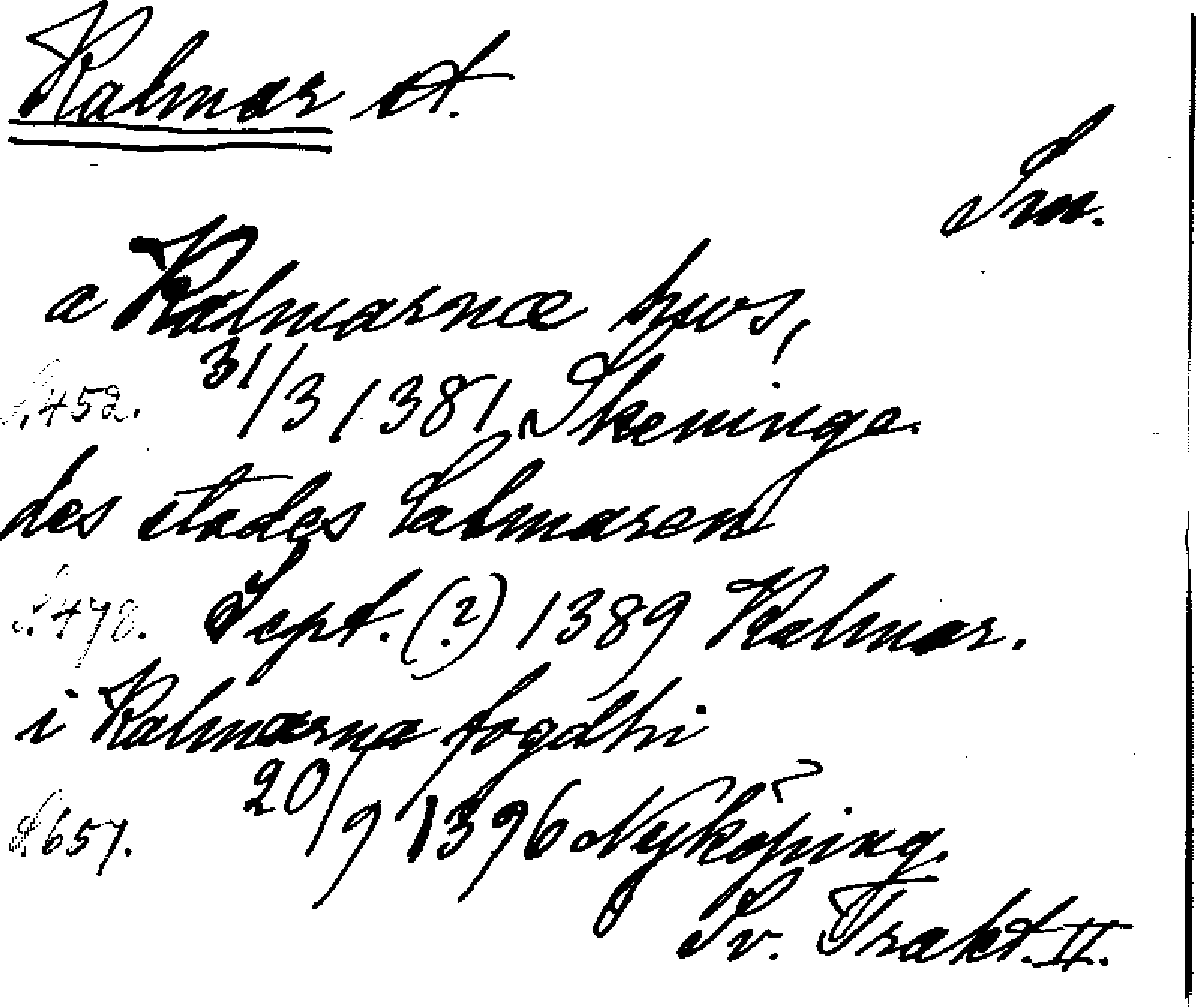 Kalmar st.
Sm.
a Kalmarnæ hws,
S. 452. 31/3 1381 Skeninge.
des stades Calmaren
S. 478. Sept. (?) 1389 Kalmar.
i Kalmarna fogdhi
S. 657. 20/9 1396 Nyköping.
Sv. Trakt. II.